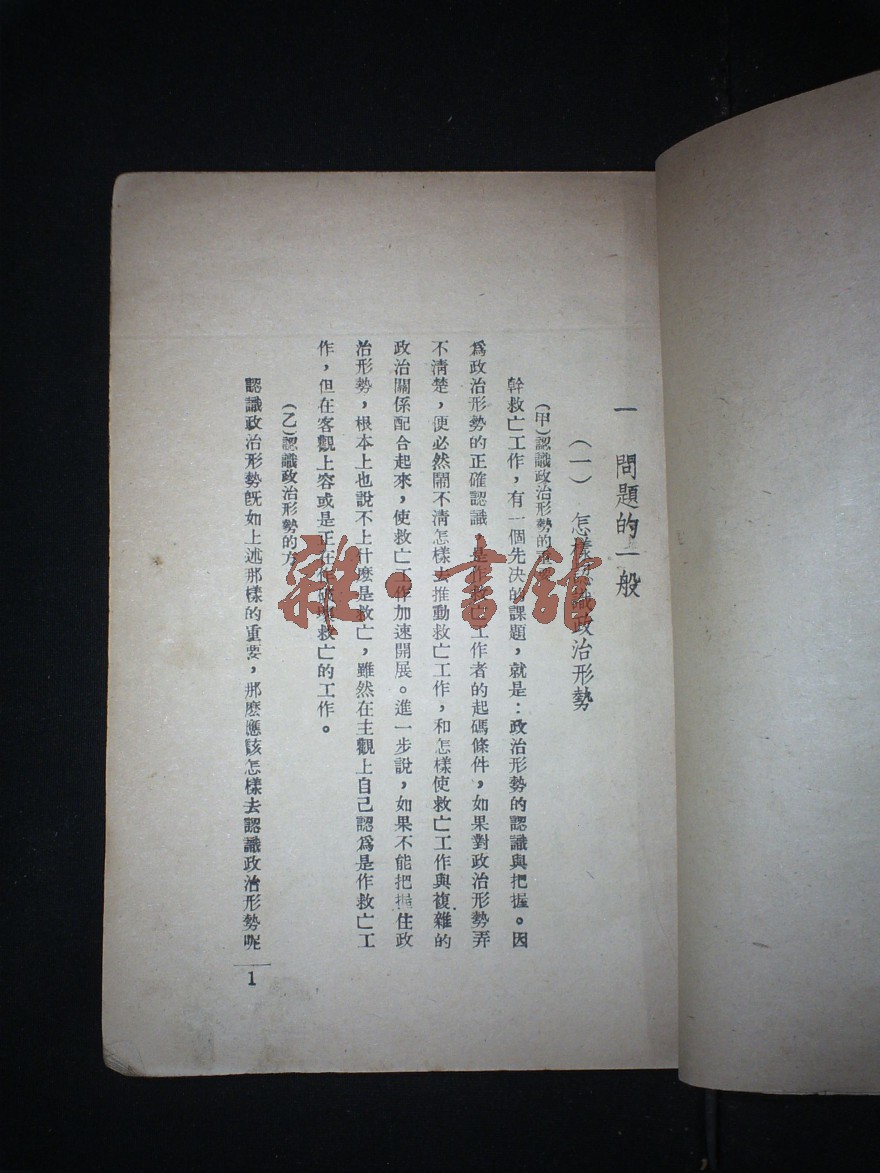 一 問題的一般
(一) 怎樣認識政治形勢
(甲)認識政治形勢的重
幹救亡工作，有一個先决的課題，就是：政治形勢的認識與把握。因
爲政治形勢的正確認識，是作救亡工作者的起碼條件，如果對政治形勢弄
不清楚，便必然鬧不清怎樣去推動救亡工作，和怎樣使救亡工作與複雜的
政治關係配合起來，使救亡工作加速開展。進一步說，如果不能把握住政
治形勢，根本上也說不上什麽是救亡，雖然在主觀上自己認爲是作救亡工
作，但在客觀上容或是正在作破壞救亡的工作。
(乙)認識政治形勢的方
認識政治形勢旣如上述那樣的重要，那麽應該怎樣去認識政治形勢呢
1
雜·書館